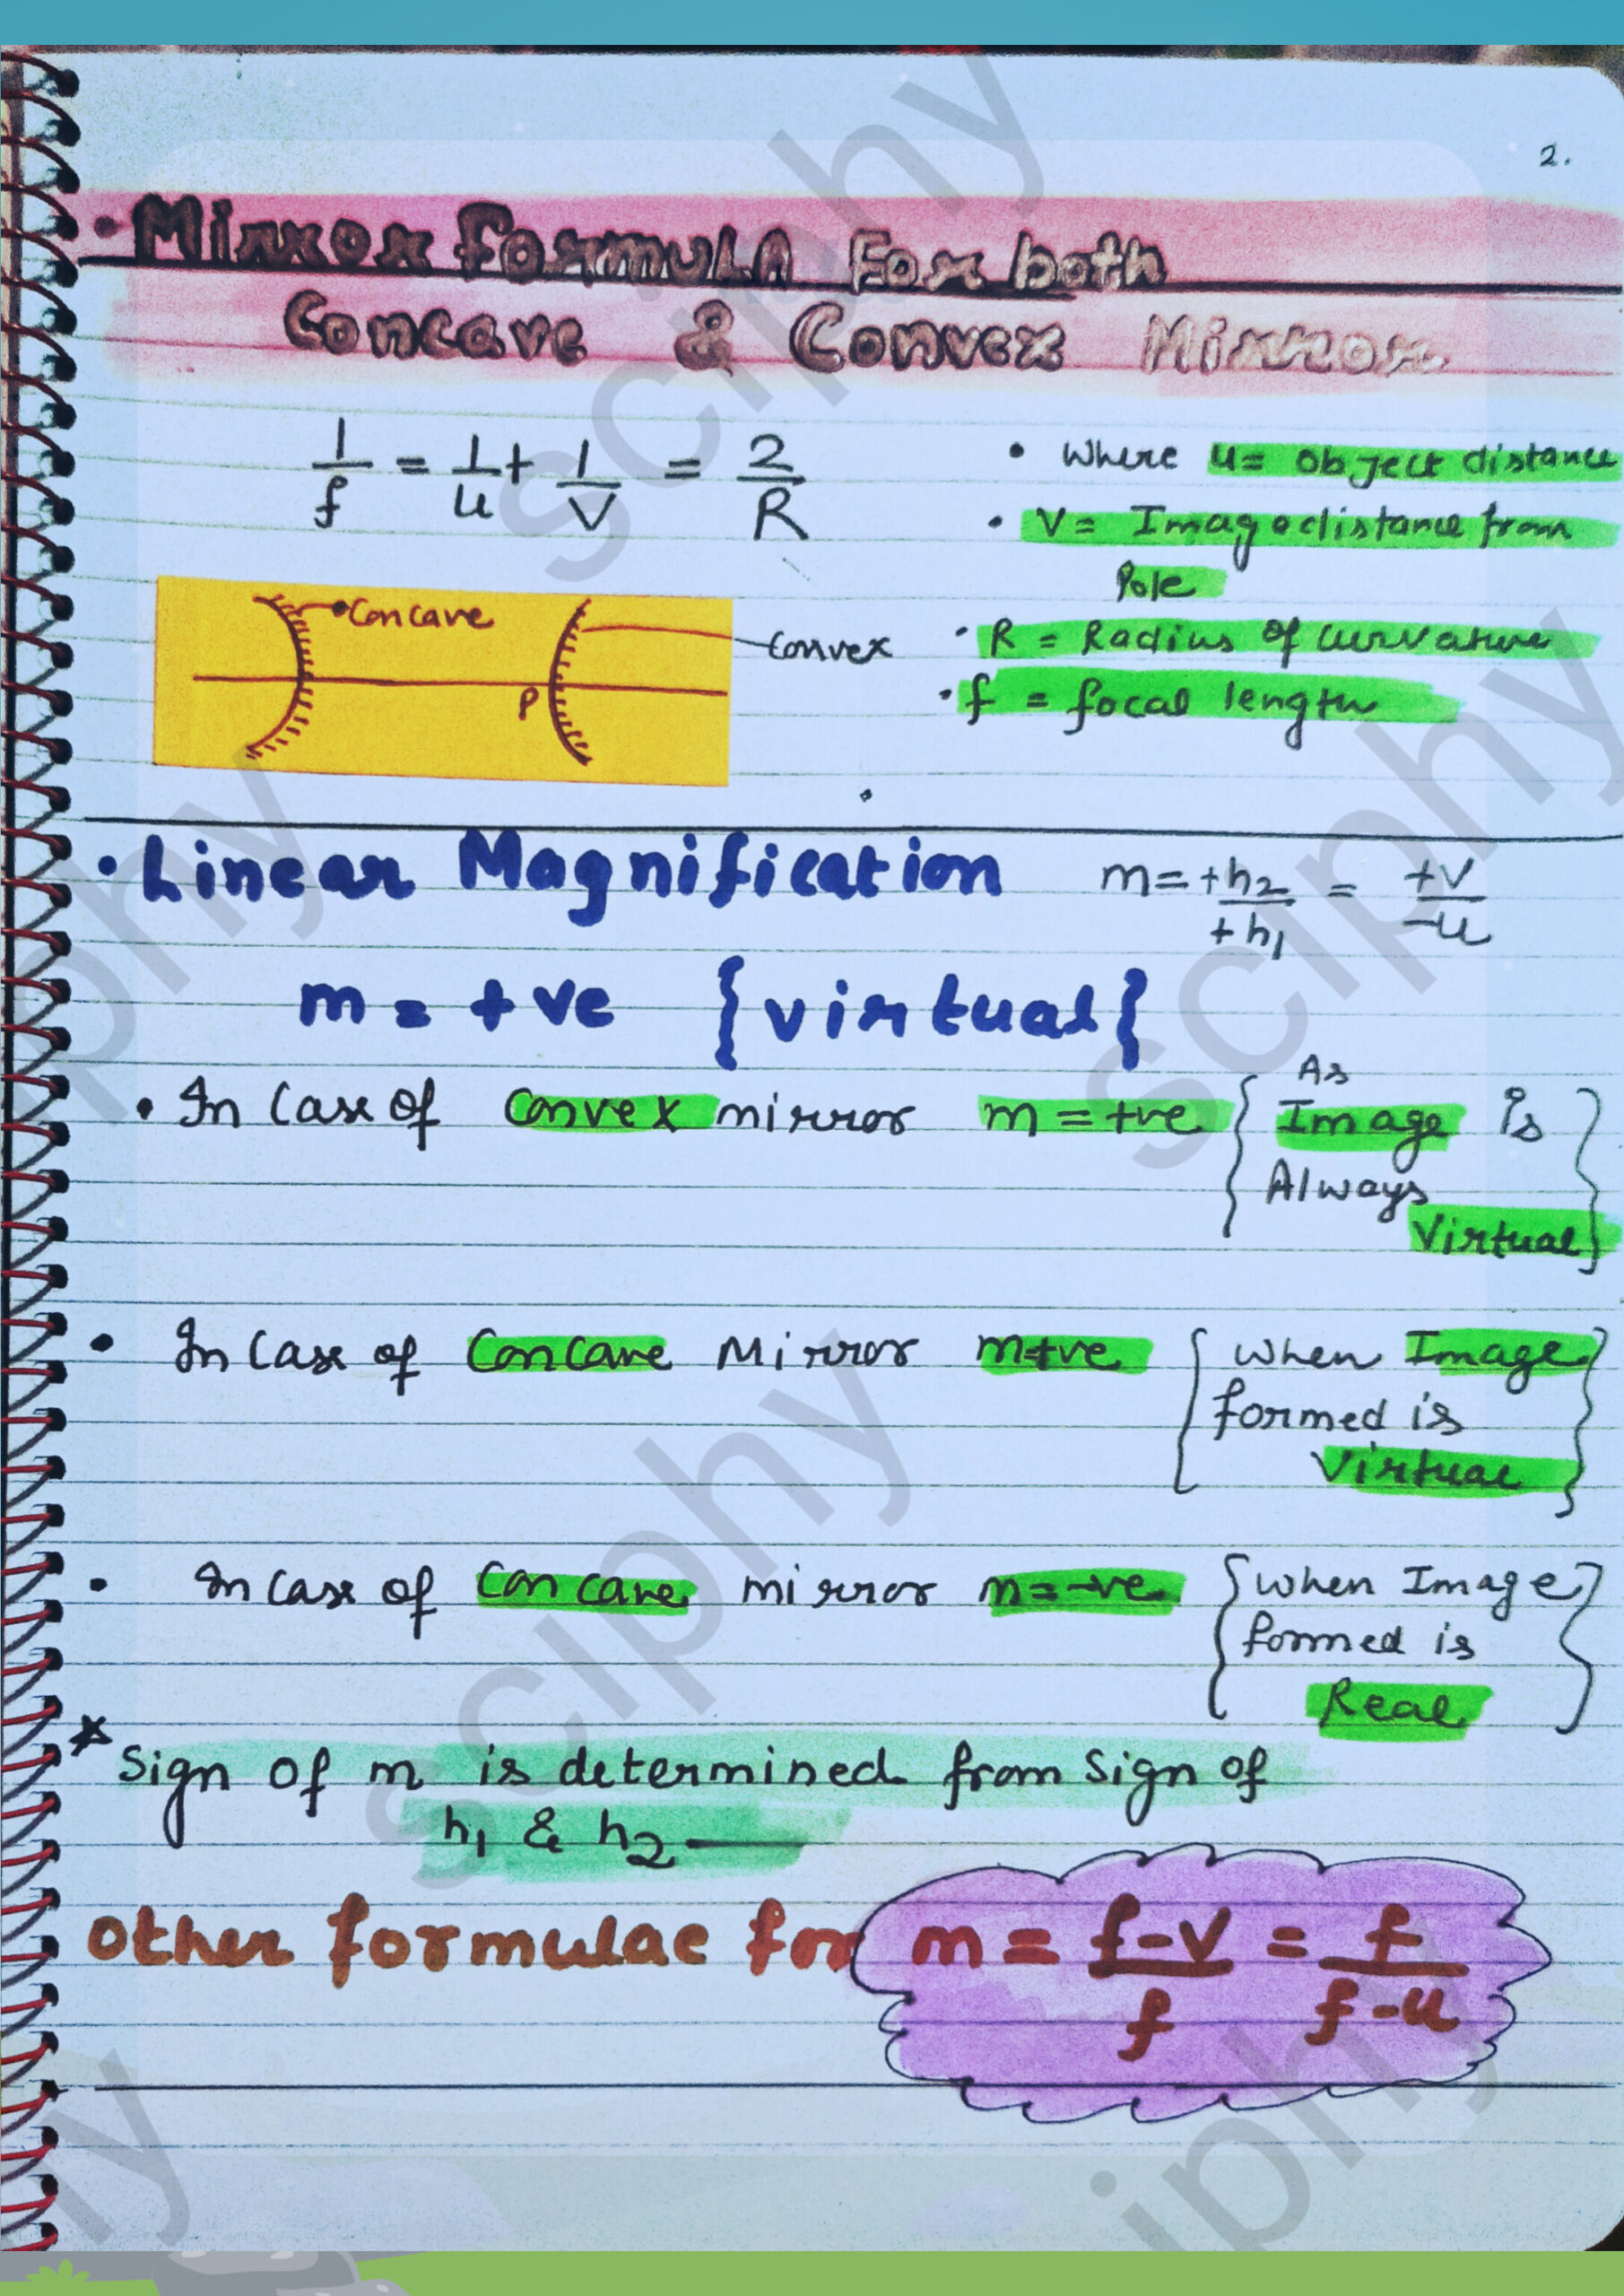 2.
• Mirror formula For both
Concave & Convex Mirror
1/f = 1/u + 1/v = 2/R
• Where u = object distance
• V = Image distance from
Pole
• R = Radius of curvature
• f = focal length
Concave
Convex
P
• Linear Magnification m = +h2/+h1 = +v/-u
m = +ve {virtual}
• In Case of Convex mirror m = +ve { As
Image is
Always
Virtual }
• In Case of Concave Mirror m+ve { when Image
formed is
Virtual }
• In Case of Concave mirror m = -ve { when Image
formed is
Real }
* Sign of m is determined from Sign of
h1 & h2 —
other formulae for m = f-v/f = f/f-u
sciphy
sciphy
phy
sciphy
hy
iphy